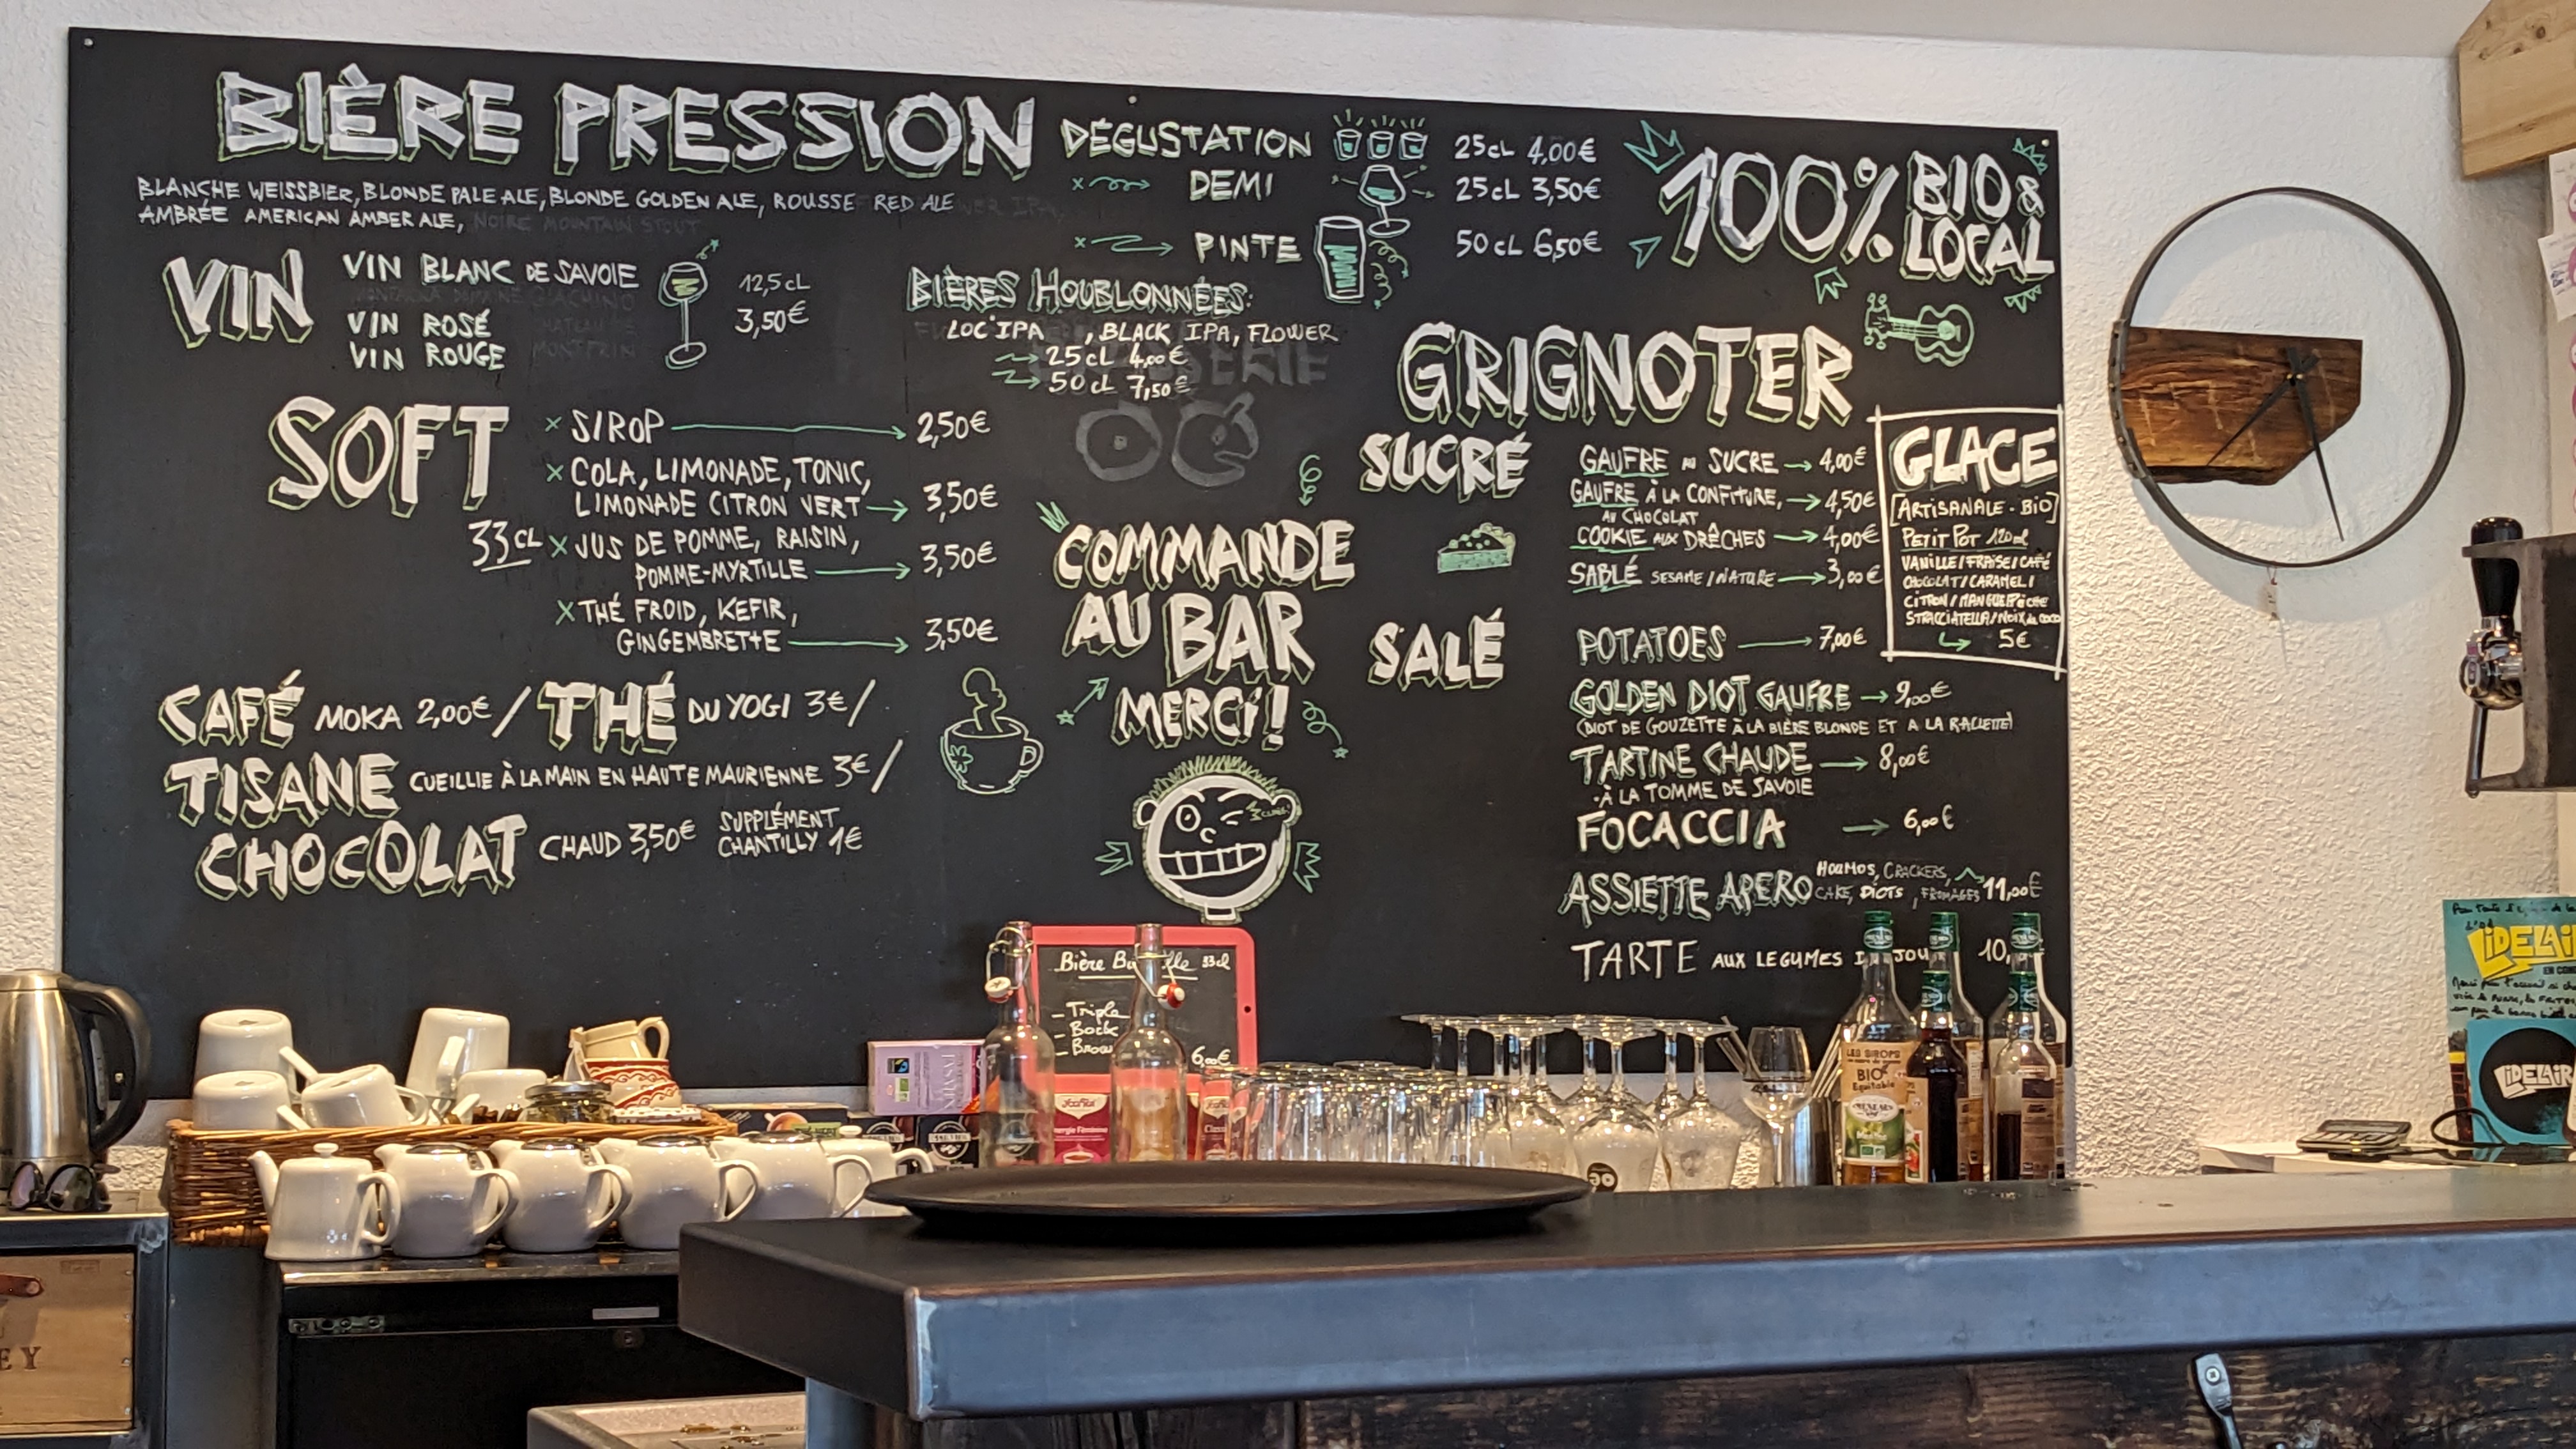 BIÈRE PRESSION
BLANCHE WEISSBIER, BLONDE PALE ALE, BLONDE GOLDEN ALE, ROUSSE RED ALE
AMBRÉE AMERICAN AMBER ALE, NOIRE MOUNTAIN STOUT
DÉGUSTATION 25cL 4,00€
DEMI 25cL 3,50€
PINTE 50cL 6,50€
100% BIO &
LOCAL
VIN
VIN BLANC DE SAVOIE
VIN ROSÉ
VIN ROUGE
12,5cL
3,50€
BIÈRES HOUBLONNÉES:
LOC'IPA, BLACK IPA, FLOWER
25cL 4,00€
50cL 7,50€
SOFT
33CL
x SIROP 2,50€
x COLA, LIMONADE, TONIC,
LIMONADE CITRON VERT 3,50€
x JUS DE POMME, RAISIN,
POMME-MYRTILLE 3,50€
x THÉ FROID, KEFIR,
GINGEMBRETTE 3,50€
CAFÉ MOKA 2,00€ / THÉ DU YOGI 3€ /
TISANE CUEILLIE À LA MAIN EN HAUTE MAURIENNE 3€ /
CHOCOLAT CHAUD 3,50€ SUPPLÉMENT
CHANTILLY 1€
COMMANDE
AU BAR
MERCI!
GRIGNOTER
SUCRÉ
GAUFRE AU SUCRE 4,00€
GAUFRE À LA CONFITURE, 4,50€
AU CHOCOLAT
COOKIE AUX DRÊCHES 4,00€
SABLÉ SESAME / NATURE 3,00€
GLACE
[ARTISANALE - BIO]
PETIT POT 120ml
VANILLE / FRAISE / CAFÉ
CHOCOLAT / CARAMEL /
CITRON / MANGUE PÊCHE
STRACCIATELLA / NOIX de COCO
5€
SALÉ
POTATOES 7,00€
GOLDEN DIOT GAUFRE 9,00€
(DIOT DE GOUZETTE À LA BIÈRE BLONDE ET A LA RACLETTE)
TARTINE CHAUDE 8,00€
À LA TOMME DE SAVOIE
FOCACCIA 6,00€
ASSIETTE APERO HOUMOS, CRACKERS,
CAKE, DIOTS, FROMAGES 11,00€
TARTE AUX LEGUMES 10,
Bière 33cl
- Triple
- Bock
6,00€
LES SIROPS
BIO
Equitable
IDELAIR